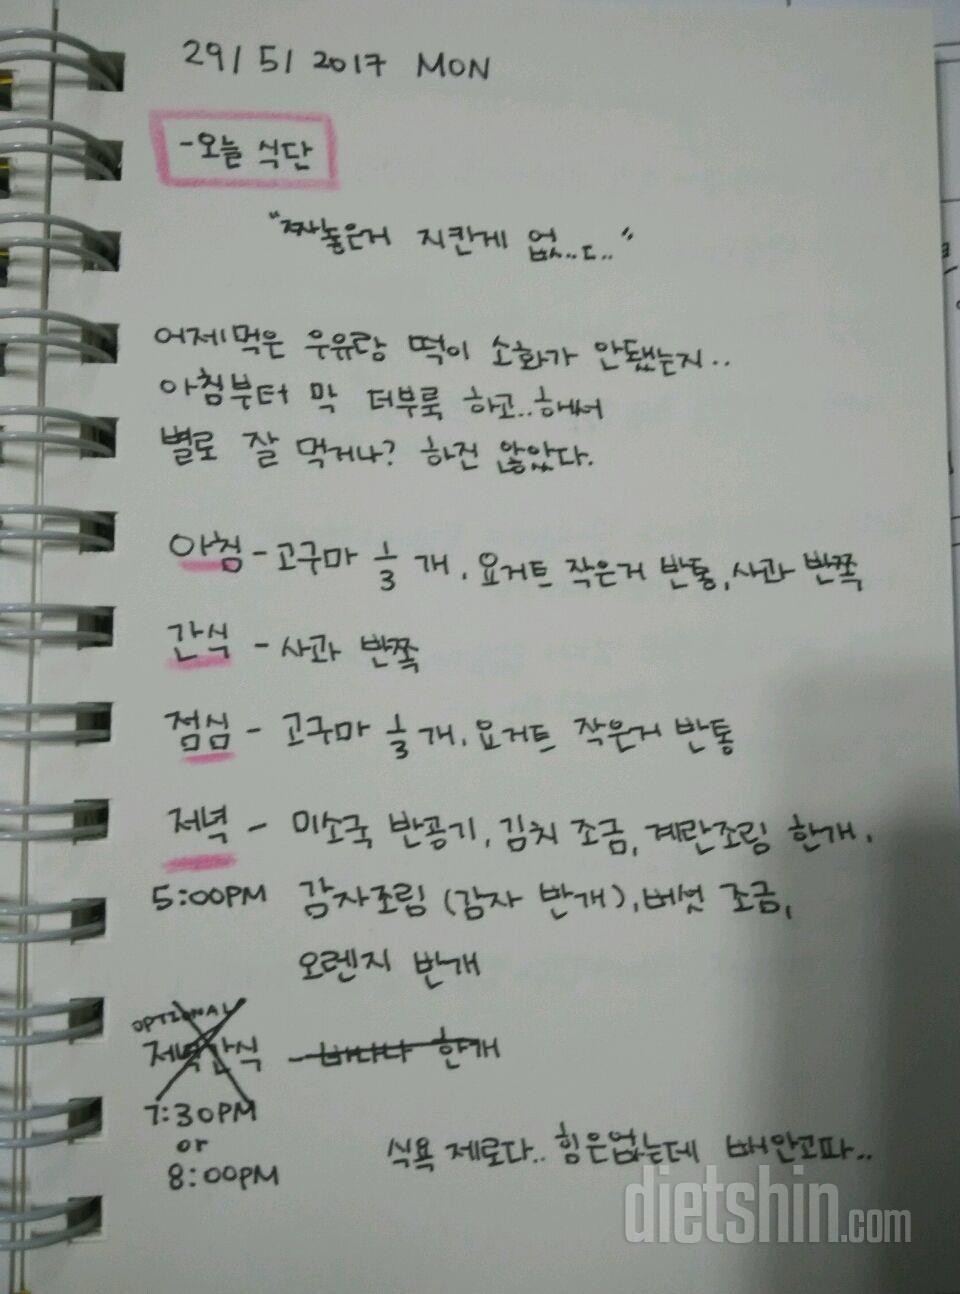 29/5/2017 MON
-오늘 식단
"짜놓은거 지칸게 없..ㄷ.."
어제먹은 우유랑 떡이 소화가 안됐는지..
아침부터 막 더부룩 하고..해서
별로 잘 먹거나? 하진 않았다.
아침 - 고구마 1/3 개, 요거트 작은거 반통, 사과 반쪽
간식 - 사과 반쪽
점심 - 고구마 1/3 개, 요거트 작은거 반통
저녁 - 미소국 반공기, 김치 조금, 계란조림 한개,
5:00PM 감자조림 (감자 반개), 버섯 조금,
오렌지 반개
OPTIONAL
저녁간식 - 바나나 한개
7:30PM
or
8:00PM
식욕 제로다.. 힘은없는데 배안고파..
dietshin.com